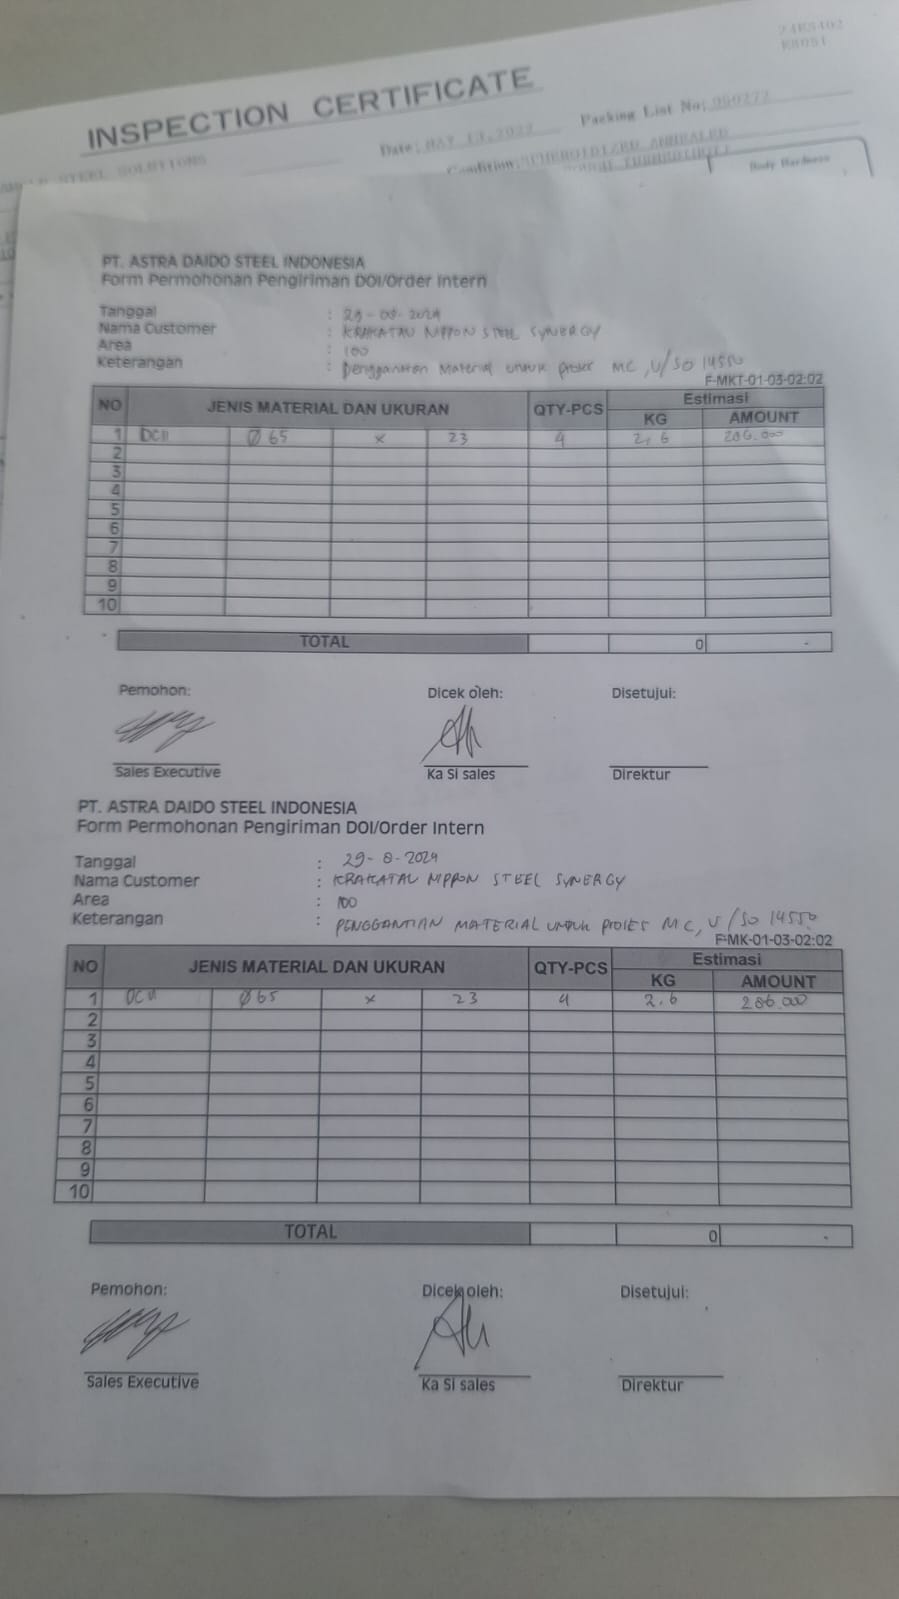 24K5402
INSPECTION CERTIFICATE
Date: MAY 13, 2022
Packing List No; 960272
STEEL SOLUTIONS
Condition: SPHEROIDIZED ANNEALED
Body Hardness
PT. ASTRA DAIDO STEEL INDONESIA
Form Permohonan Pengiriman DOI/Order Intern
Tanggal : 29-08-2024
Nama Customer : KRAKATAU NIPPON STEEL SYNERGY
Area : 100
Keterangan : Penggantian Material untuk proses MC, U/SO 14550
F-MKT-01-03-02:02
NO JENIS MATERIAL DAN UKURAN QTY-PCS Estimasi
KG AMOUNT
1 DC11 Ø 65 x 23 4 2,6 286.000
2
3
4
5
6
7
8
9
10
TOTAL 0 -
Pemohon: Dicek oleh: Disetujui:
Sales Executive Ka Si sales Direktur
PT. ASTRA DAIDO STEEL INDONESIA
Form Permohonan Pengiriman DOI/Order Intern
Tanggal : 29-8-2024
Nama Customer : KRAKATAU NIPPON STEEL SYNERGY
Area : 100
Keterangan : PENGGANTIAN MATERIAL UNTUK PROSES MC, U/SO 14550
F-MK-01-03-02:02
NO JENIS MATERIAL DAN UKURAN QTY-PCS Estimasi
KG AMOUNT
1 DC11 Ø65 x 23 4 2.6 286.000
2
3
4
5
6
7
8
9
10
TOTAL 0 -
Pemohon: Dicek oleh: Disetujui:
Sales Executive Ka Si sales Direktur